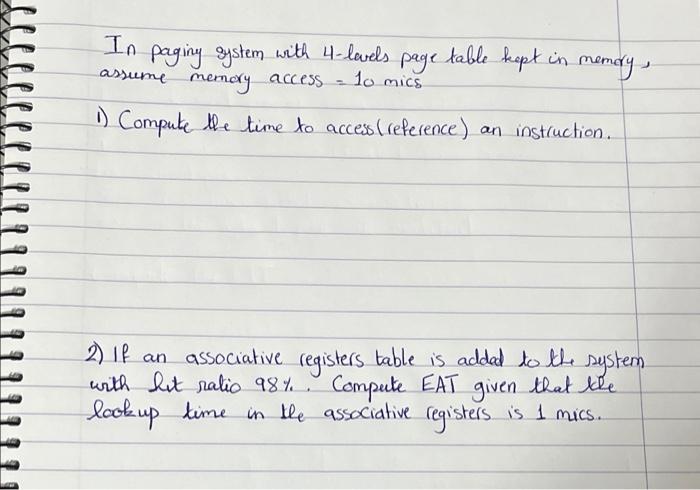 In paging system with 4-levels page table kept in memory,
assume memory access = 10 mics
1) Compute the time to access (reference) an instruction.
2) If an associative registers table is added to the system
with hit ratio 98%. Compute EAT given that the
lookup time in the associative registers is 1 mics.